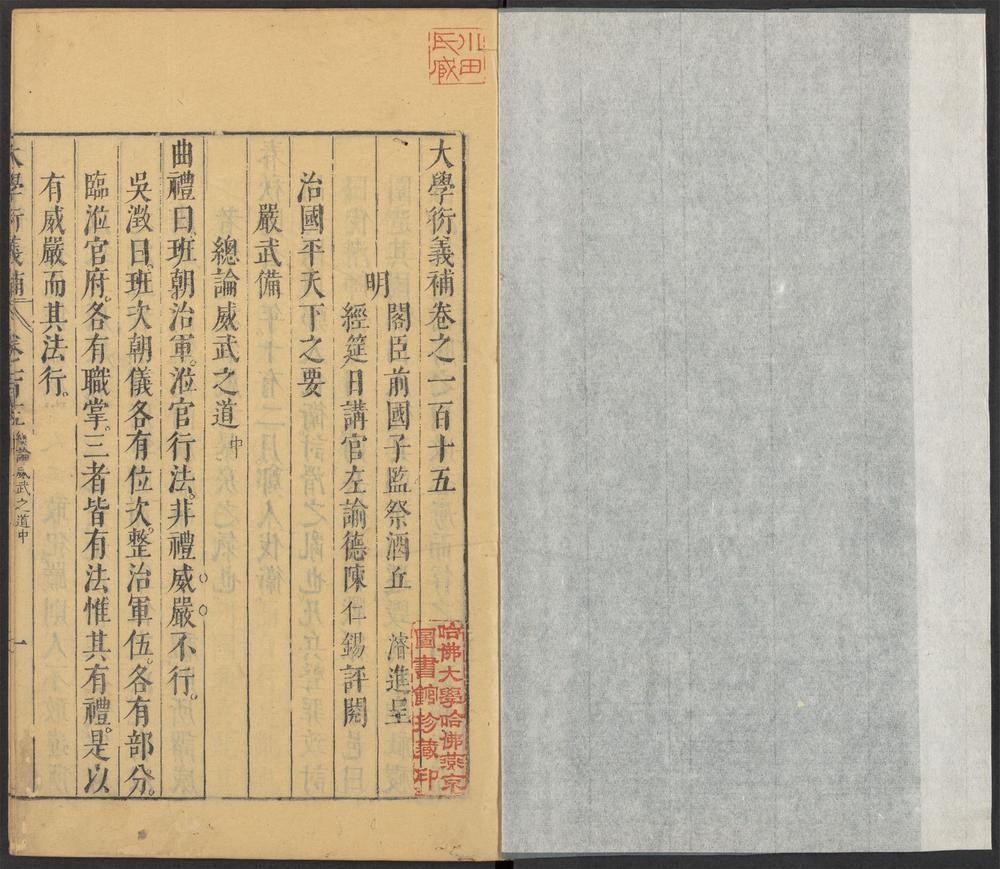 大學衍義補卷之一百十五
明
閣臣前國子監祭酒丘 濬進呈
經筵日講官左諭德陳仁錫評閱
治國平天下之要
嚴武備
總論威武之道中
曲禮曰班朝治軍。涖官行法。非禮威嚴不行。
吳澂曰。班次朝儀各有位次。整治軍伍。各有部分。
臨涖官府。各有職掌。三者皆有法惟其有禮。是以
有威嚴而其法行。
大學衍義補 卷一百十五 總論威武之道中 一
川田氏藏
哈佛大學哈佛燕京圖書館珍藏印